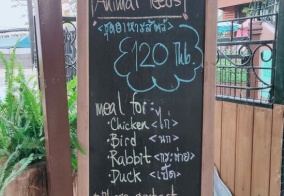 Animal feeds!
<ชุดอาหารสัตว์>
120 THB.
meal for:
· Chicken <ไก่>
· Bird <นก>
· Rabbit <กระต่าย>
· Duck <เป็ด>